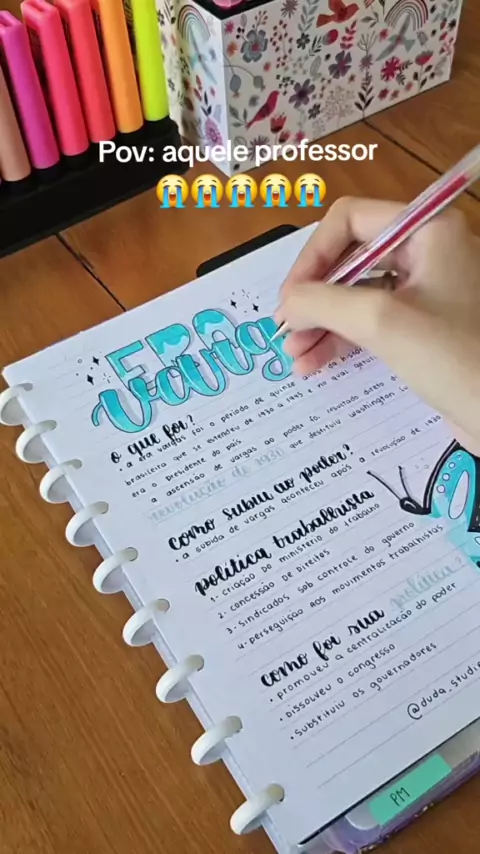 Pov: aquele professor
😭😭😭😭😭
ERA
Varg
o que foi?
• a era vargas foi o período de quinze anos da histór
brasileira que se estendeu de 1930 a 1945 e no qual getúli
era o presidente do país
a ascensão de vargas ao poder foi resultado direto
revolução de 1930 que destituiu washington lu
como subiu ao poder?
• a subida de vargas aconteceu após a revolução de 1930
política trabalhista
1- criação do ministério do trabalho
2- concessão de direitos
3- sindicados sob controle do governo
4- perseguição aos movimentos trabalhistas
como foi sua política?
• promoveu a centralização do poder
• dissolveu o congresso
• substituiu os governadores
@duda_studie
PM